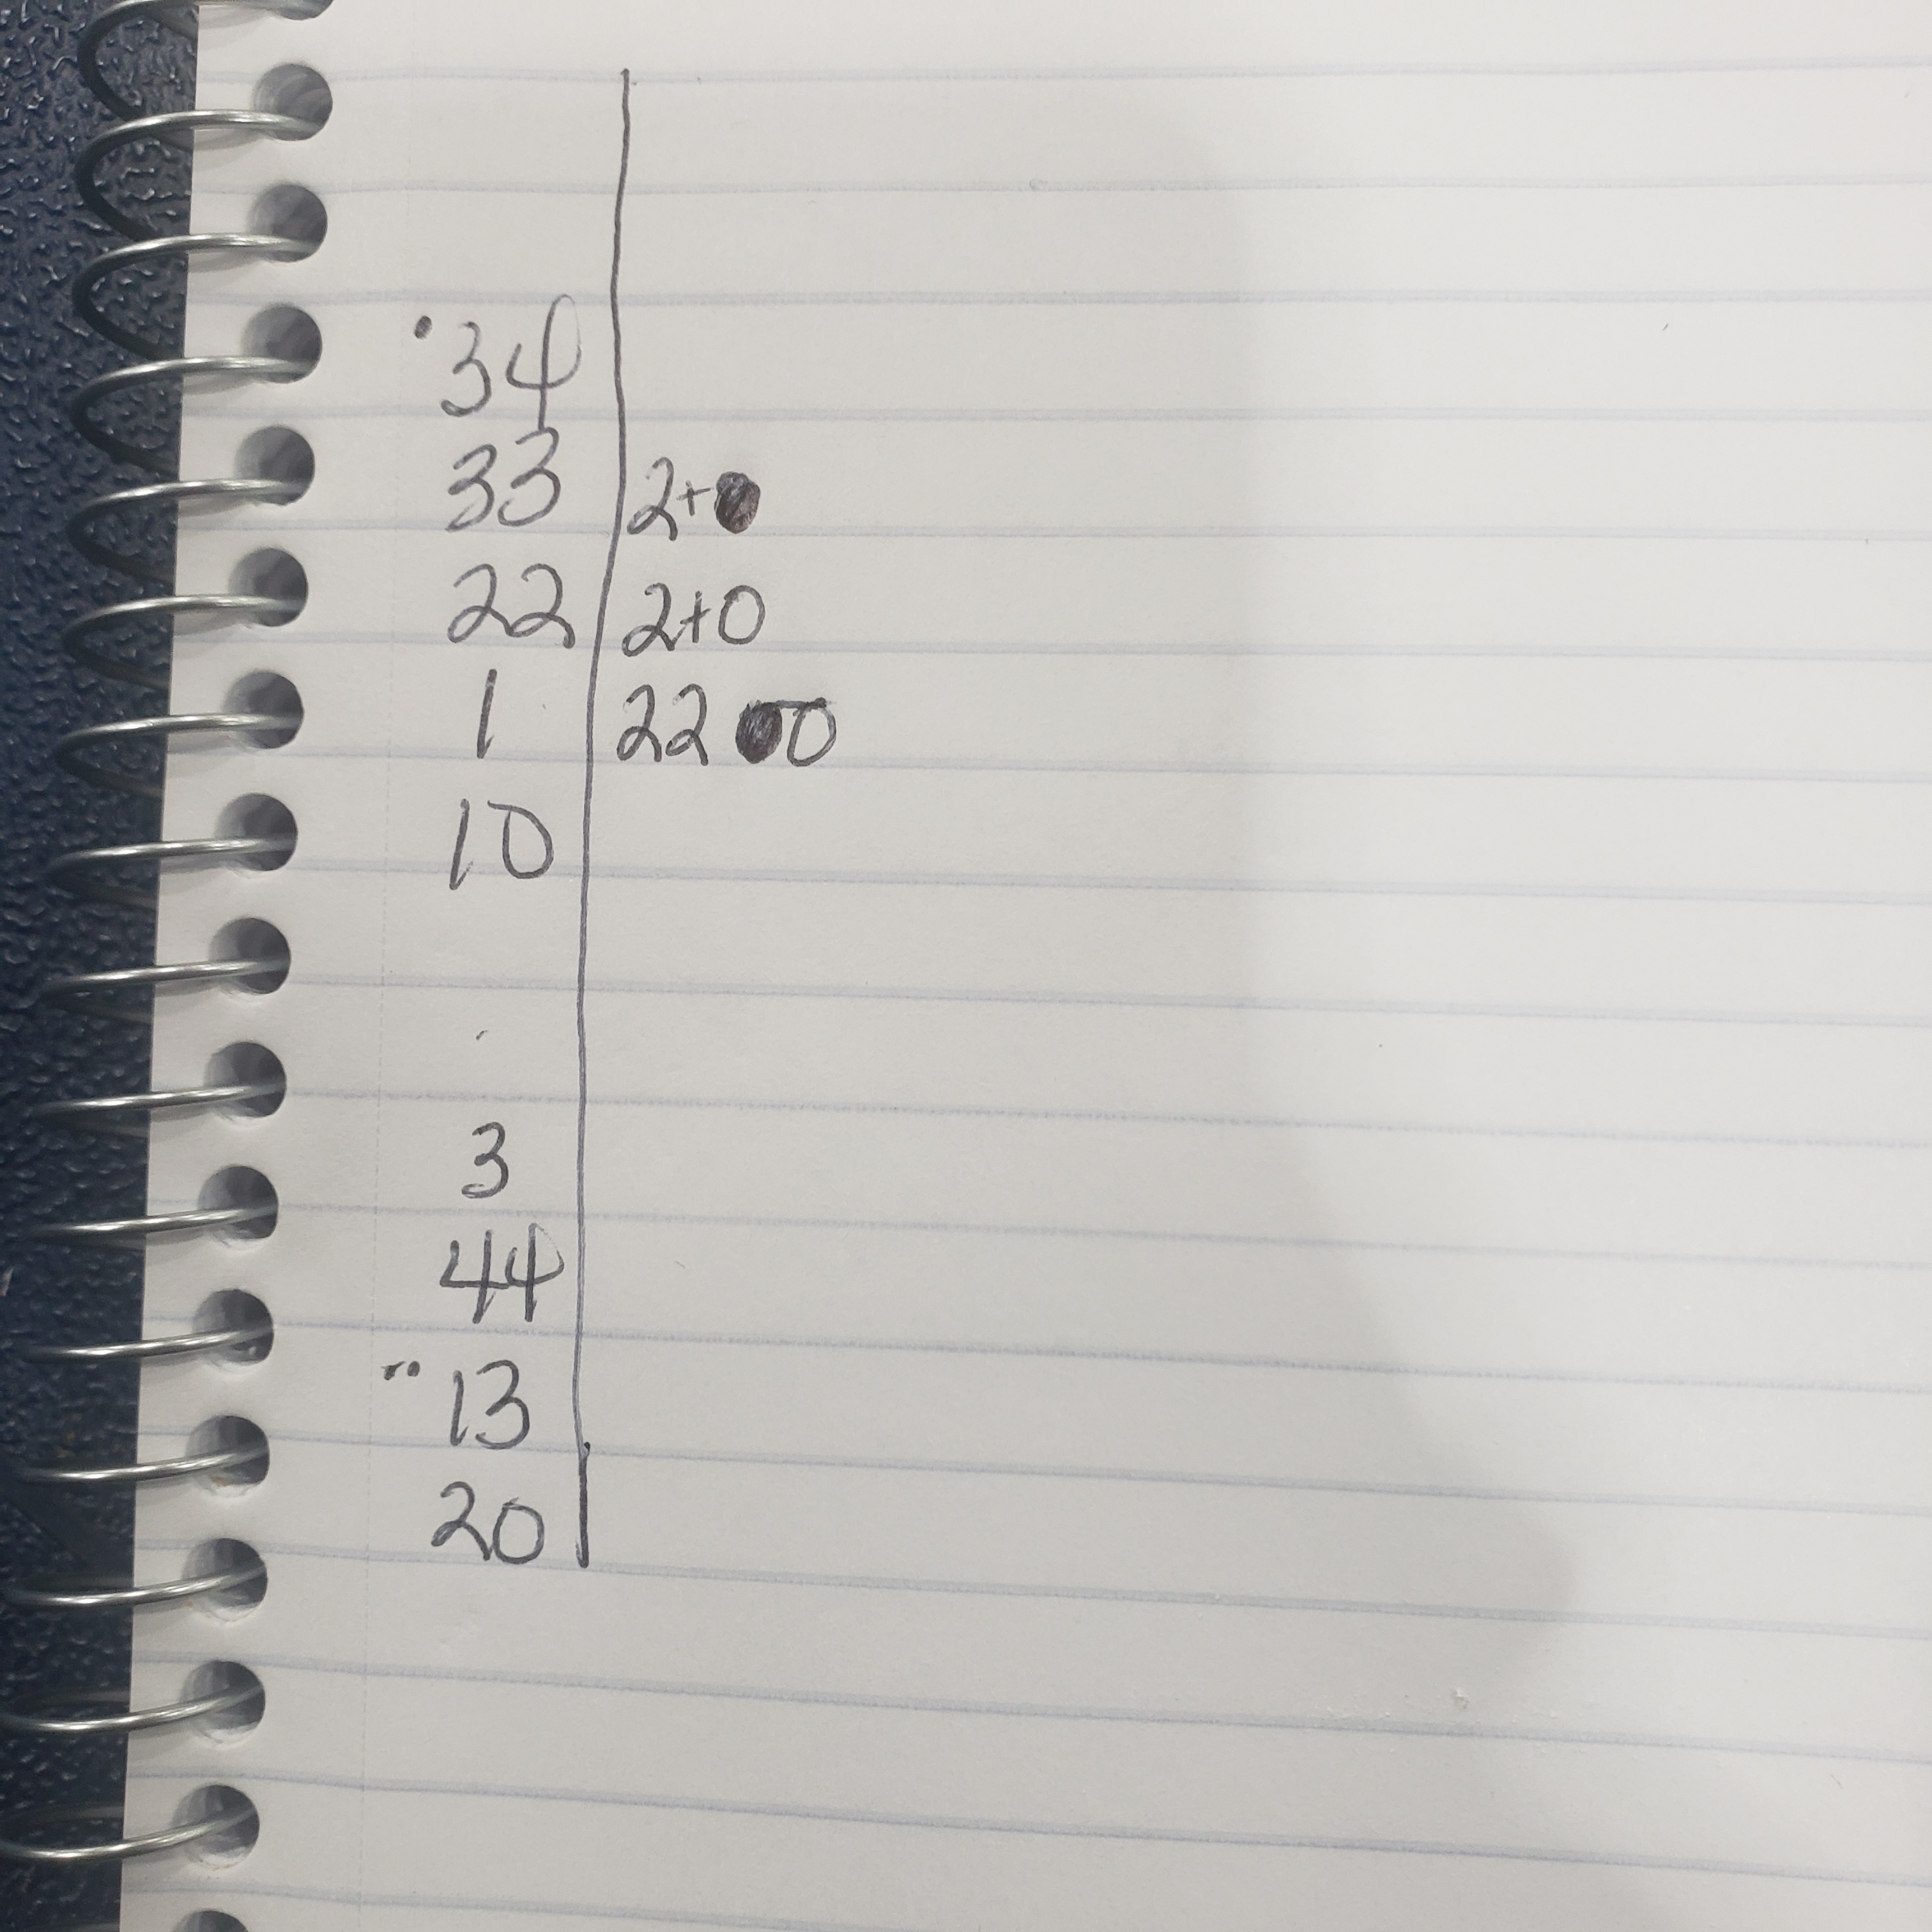 34
33 2+
22 2+0
1 22 0
10
3
44
13
20